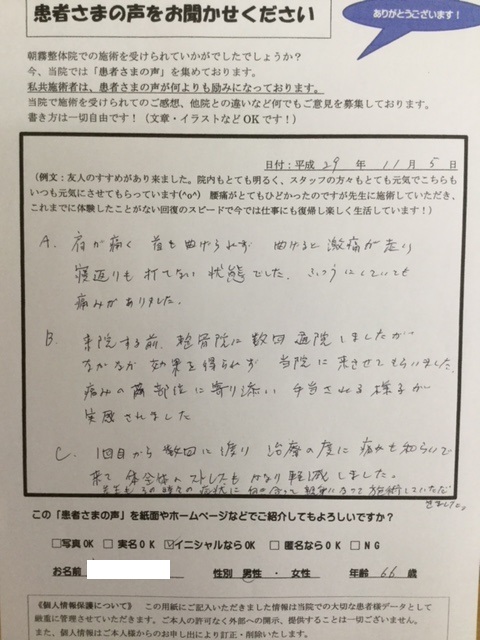 患者さまの声をお聞かせください
ありがとうございます！
朝霧整体院での施術を受けられていかがでしたでしょうか？
今、当院では「患者さまの声」を集めております。
私共施術者は、患者さまの声が何よりも励みになっております。
当院で施術を受けられてのご感想、他院との違いなど何でもご意見を募集しております。
書き方は一切自由です！（文章・イラストなどOKです！）
日付：平成 29 年 11 月 5 日
（例文：友人のすすめがあり来ました。院内もとても明るく、スタッフの方々もとても元気でこちらも
いつも元気にさせてもらっています(^o^) 腰痛がとてもひどかったのですが先生に施術していただき、
これまでに体験したことがない回復のスピードで今では仕事にも復帰し楽しく生活しています！）
A. 肩が痛く 首も曲げられず 曲げると激痛が走り
寝返りも打てない状態でした。ふつうにしていても
痛みがありました。
B. 来院する前、整骨院に数回通院しましたが
なかなか効果を得られず 当院に来させてもらいました。
痛みの 部位に寄り添い 手当される様子が
実感されました
C. 1回目から数回に渡り 治療の度に痛みも和らいで
来て 体全体のストレスもかなり軽減しました。
先生もその時々の症状に 施術していただ
きました。
この「患者さまの声」を紙面やホームページなどでご紹介してもよろしいですか？
□写真OK □実名OK ☑イニシャルならOK □匿名ならOK □NG
お名前 性別 男性・女性 年齢 66 歳
《個人情報保護について》 この用紙にご記入いただきました情報は当院での大切な患者様データとして
厳重に管理させていただいます。ご本人の許可なく外部への開示、提供することは一切ございません。
また、個人情報はご本人様からのお申し出により訂正・削除いたします。